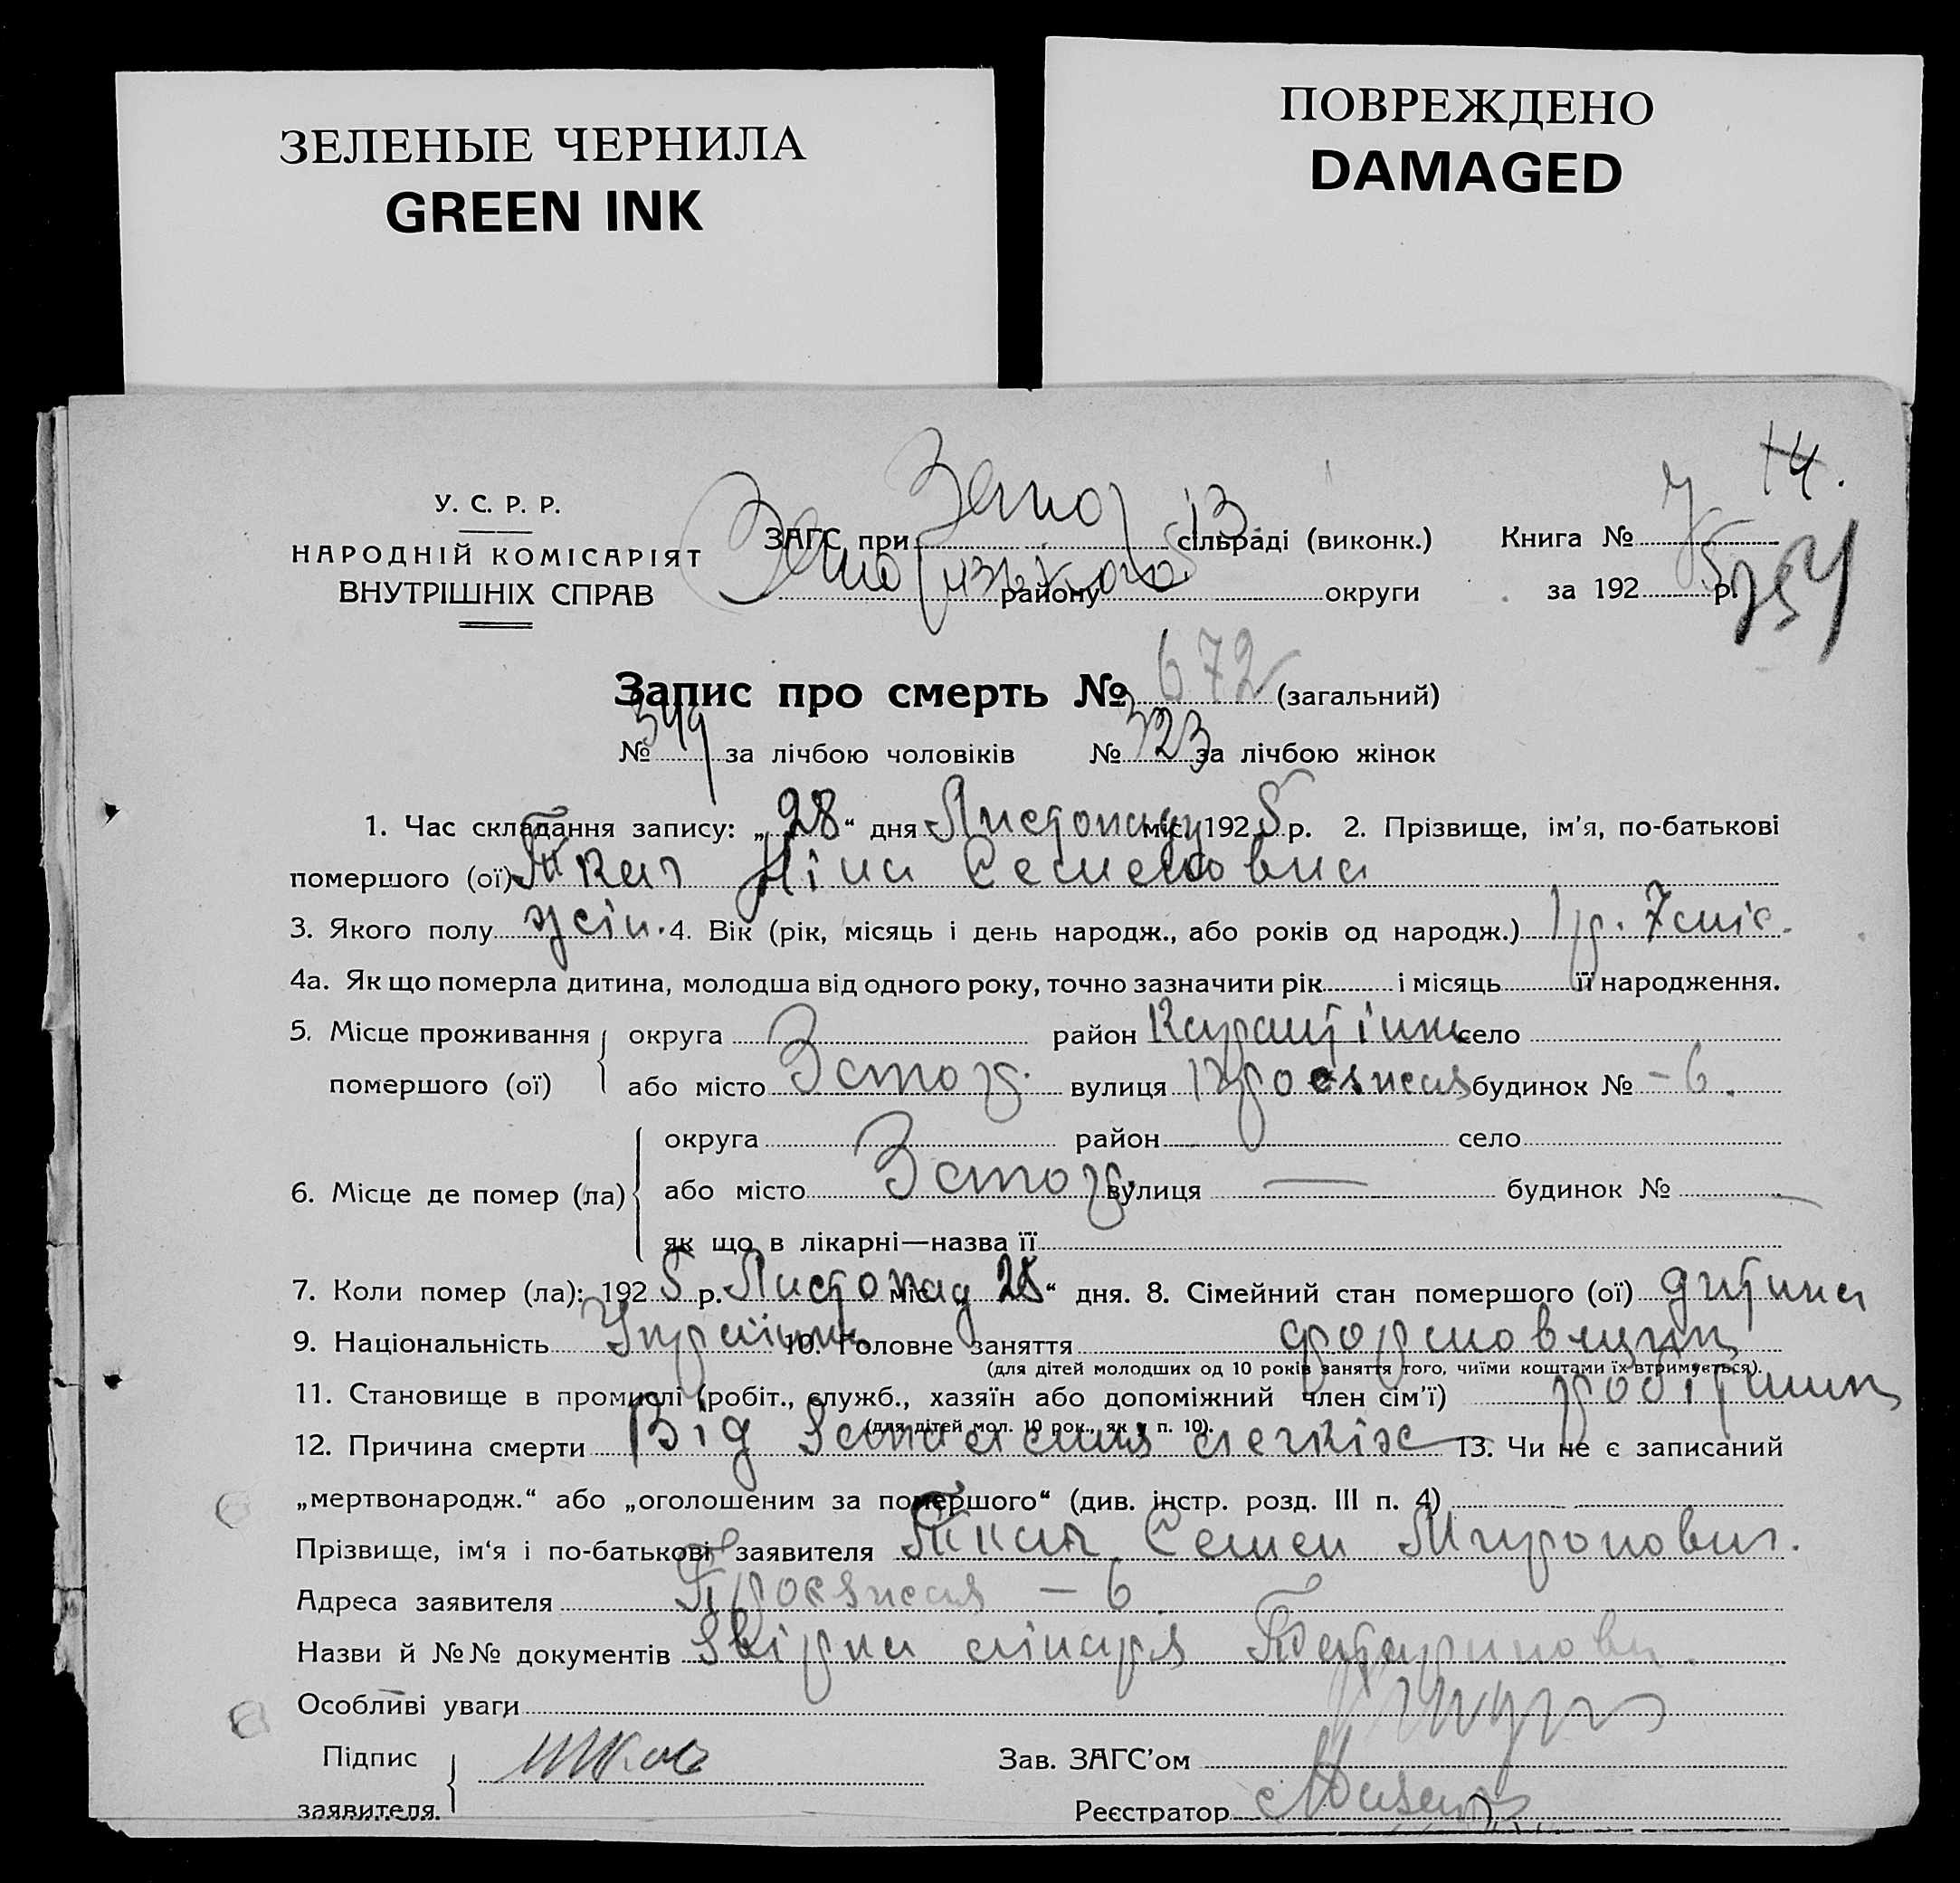 ЗЕЛЕНЫЕ ЧЕРНИЛА
GREEN INK
ПОВРЕЖДЕНО
DAMAGED
14.
У. С. Р. Р.
НАРОДНІЙ КОМІСАРІЯТ
ВНУТРІШНІХ СПРАВ
ЗАГС при Запор сільраді (виконк.)
Запорізького району округи
Книга № 7
за 1925 р.
Запис про смерть № 672 (загальний)
№ 349 за лічбою чоловіків № 323 за лічбою жінок
1. Час складання запису: „28“ дня Листопаду міс. 1925 р. 2. Прізвище, ім'я, по-батькові
помершого (ої) Ткач Ніна Семеновна
3. Якого полу жін. 4. Вік (рік, місяць і день народж., або років од народж.) 1 р. 7 міс.
4а. Як що померла дитина, молодша від одного року, точно зазначити рік і місяць її народження.
5. Місце проживання помершого (ої) округа район Карантінн село
або місто Запор. вулиця Проезжая будинок № – 6.
6. Місце де помер (ла) округа район село
або місто Запор. вулиця — будинок №
як що в лікарні—назва її
7. Коли помер (ла): 1925 р. Листопад міс. „28“ дня. 8. Сімейний стан помершого (ої) дитина
9. Національність Україінка 10. Головне заняття формовщик
(для дітей молодших од 10 років заняття того, чиїми коштами їх втримується).
11. Становище в промислі (робіт., служб., хазяїн або допоміжний член сім'ї) робітник
(для дітей мол. 10 рок., як у п. 10).
12. Причина смерти Від запалення легкіх 13. Чи не є записаний
„мертвонародж.“ або „оголошеним за помершого“ (див. інстр. розд. III п. 4)
Прізвище, ім'я і по-батькові заявителя Ткач Семен Миронович.
Адреса заявителя Проезжая – 6
Назви й №№ документів Звірка лікаря Татаринови.
Особливі уваги
Підпис заявителя. Ткач
Зав. ЗАГС'ом
Реєстратор